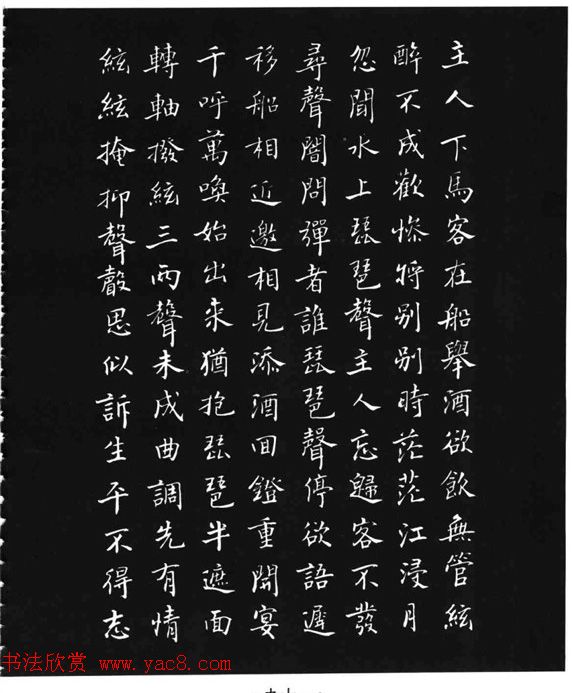 主人下馬客在船舉酒欲飲無管絃
醉不成歡慘將別別時茫茫江浸月
忽聞水上琵琶聲主人忘歸客不發
尋聲闇問彈者誰琵琶聲停欲語遲
移船相近邀相見添酒回鐙重開宴
千呼萬喚始出來猶抱琵琶半遮面
轉軸撥絃三兩聲未成曲調先有情
絃絃掩抑聲聲思似訴生平不得志
书法欣赏 www.yac8.com